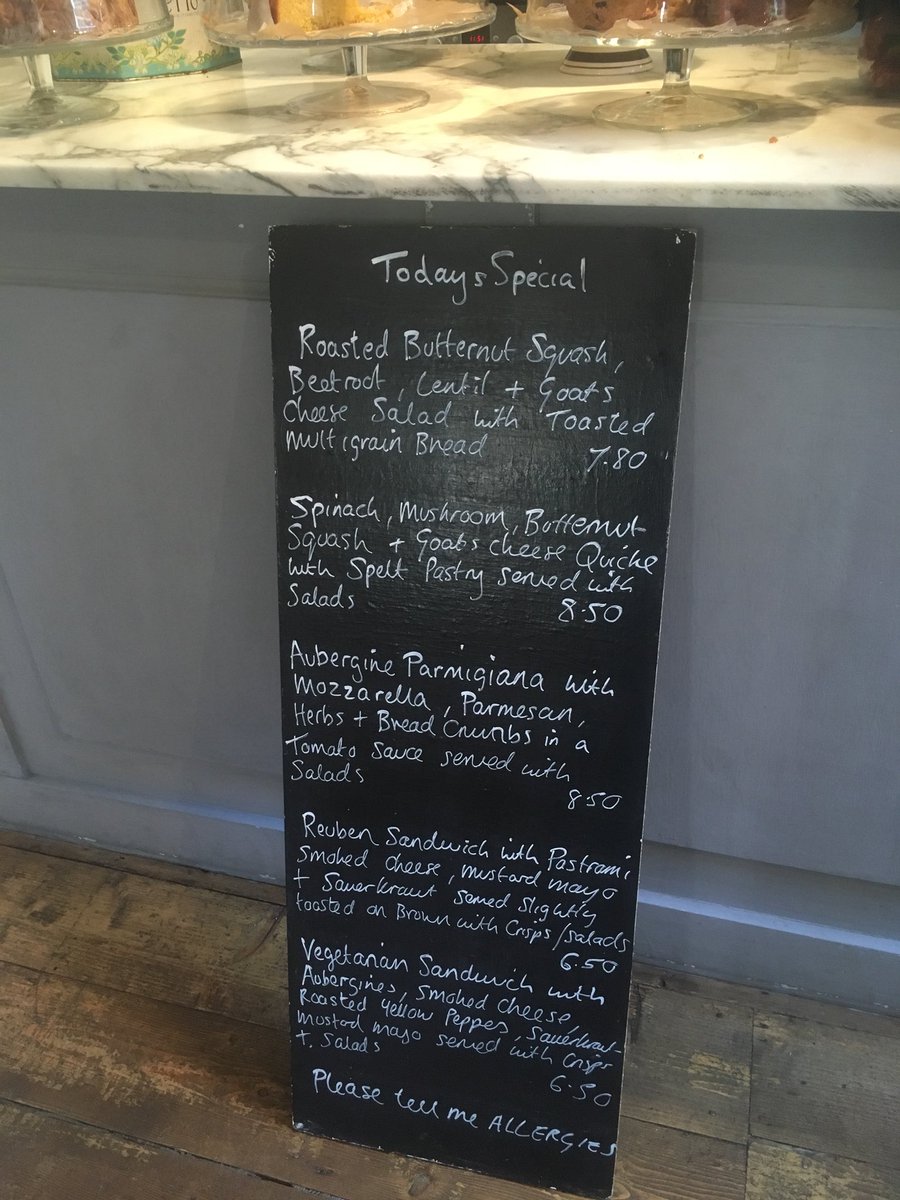 Todays Special
Roasted Butternut Squash,
Beetroot, Lentil + Goats
Cheese Salad with Toasted
Multigrain Bread 7.80
Spinach, Mushroom, Butternut
Squash + Goats cheese Quiche
with Spelt Pastry served with
Salads 8.50
Aubergine Parmigiana with
Mozzarella, Parmesan,
Herbs + Bread Crumbs in a
Tomato Sauce served with
Salads
8.50
Reuben Sandwich with Pastrami
Smoked Cheese, mustard mayo
+ Sauerkraut served slightly
toasted on Brown with Crisps/salads
6.50
Vegetarian Sandwich with
Aubergines, smoked cheese,
Roasted Yellow Pepper, Sauerkraut
mustard mayo served with crisps
+ Salads
6.50
Please tell me ALLERGIES